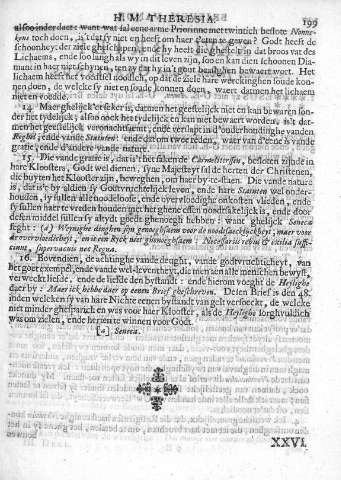 H. M. THERESIA. 199
alsoo inder daet: want wat sal eene arme Priorinne met twintich beslote Nonne-
kens toch doen, is't datse niet en heeft om haer t'eten te geven? God heeft de
schoonheyt der ziele gheschapen, ende hy heeft die ghestelt in dat broos vat des
Lichaems, ende soo langh als wy in dit leven zijn, soo en kan dien schoonen Dia-
mant in haer niet schynen, ten zy dat hy in't gout besighen bewaert wort. Het
lichaem heeft het voedtsel noodich, op dat de ziele hare werckinghen soude kon-
nen doen, de welcke sy niet en soude konnen doen, waer't datmen het lichaem
niet en voedde.
14. Maer ghelijck't seker is, datmen het geestelijck niet en kan bewaren son-
der het tydelijck; alsoo oock het tydelijck en kan niet bewaert worden, is't dat-
men het geestelijck veronachtsaemt, ende verslapt in d'onderhoudinghe vanden
Regel, ende vande Statuten: ende dat om twee reden, waer van d'eene is vande
gratie, ende d'andere vande nature.
15. Die vande gratie is, dat is't sake de Carmeliterssen, besloten zijnde in
hare Kloosters, God wel dienen, Syne Majesteyt sal de herten der Christenen,
die buyten het Klooster zijn, beweghen, om haer by te staen. Die vande nature
is, dat is't by aldien sy Godtvruchtelijck leven, ende hare Statuten wel onder-
houden, sy sullen alle noodeloose, ende overvloedighe onkosten vlieden, ende
sy sullen haer te vreden houden met het ghene noodtsakelijck is, ende door
desen middel sullen sy altydt goedts ghenoegh hebben: want ghelijck Seneca
seght: (a) Weynighe dinghen zijn ghenoeghsaem voor de nootsaeckelijckheyt, maer voor
de overvloedicheyt, en is een Ryck niet ghenoeghsaem: Necessariis rebus & exilia suffi-
ciunt, supervacuis nec Regna.
16. Bovendien, de achtinghe vande deught, vande godtvruchticheyt, van
het goet exempel, ende vande wel-leventheyt, die men aen alle menschen bewyst,
verweckt liefde, ende de liefde den bystandt: ende hierom voeght de Heylighe
daer by: Maer ick hebbe daer op eenen Brief gheschreven. Desen Brief is den 48.
inden welcken sy van hare Nichte eenen bystandt van gelt versoeckt, de welcke
niet minder ghespaerich en was voor haer Klooster, als de Heylighe sorghvuldich
was om zielen, ende herten te winnen voor Godt.
[a] Seneca.
XXVI.